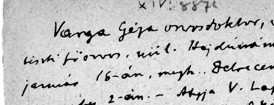 XIV. 887
Varga Géza orvosdoktor,
tiszti főorvos, szül. Hajdúnánás
január 16-án, megh. Debrecen
2-án. – Atyja V. Laj